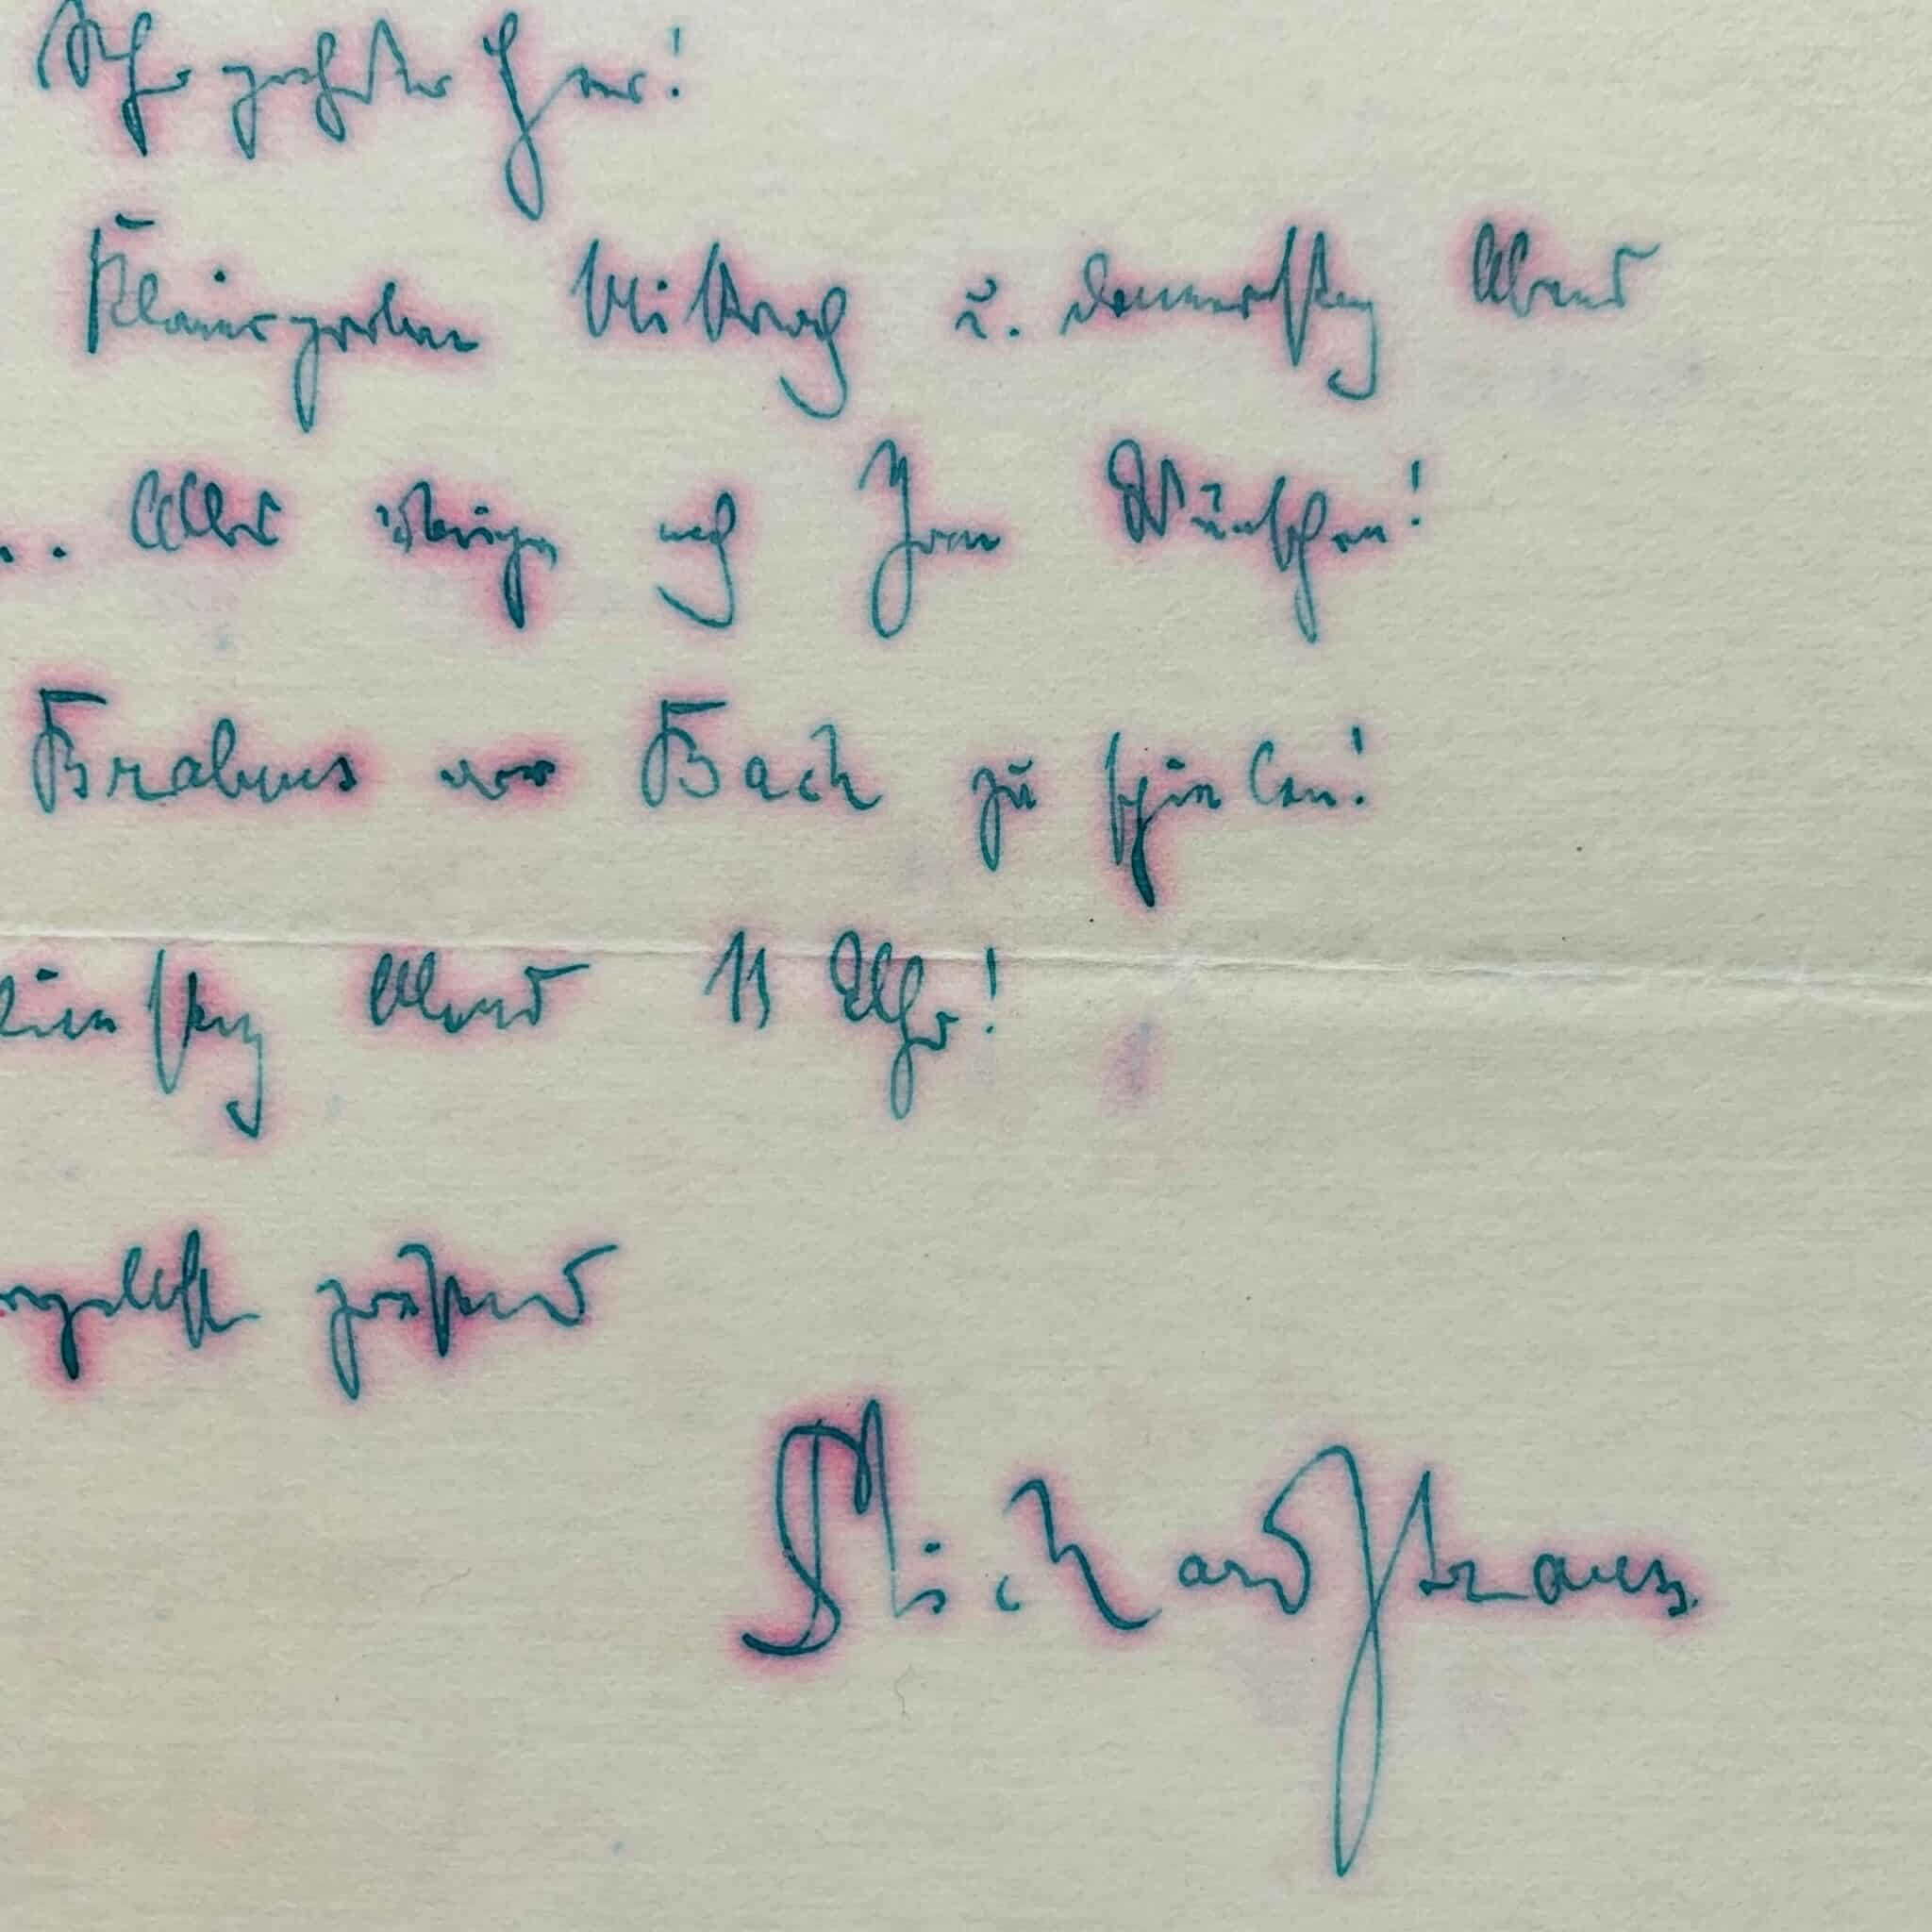 Sehr geehrter Herr!
Klavierproben Mittwoch u. Donnerstag Abend
.. Alles übrige nach Ihren Wünschen!
Brahms vor Bach zu spielen!
Dienstag Abend 11 Uhr!
grüßend
Richard Strauss.